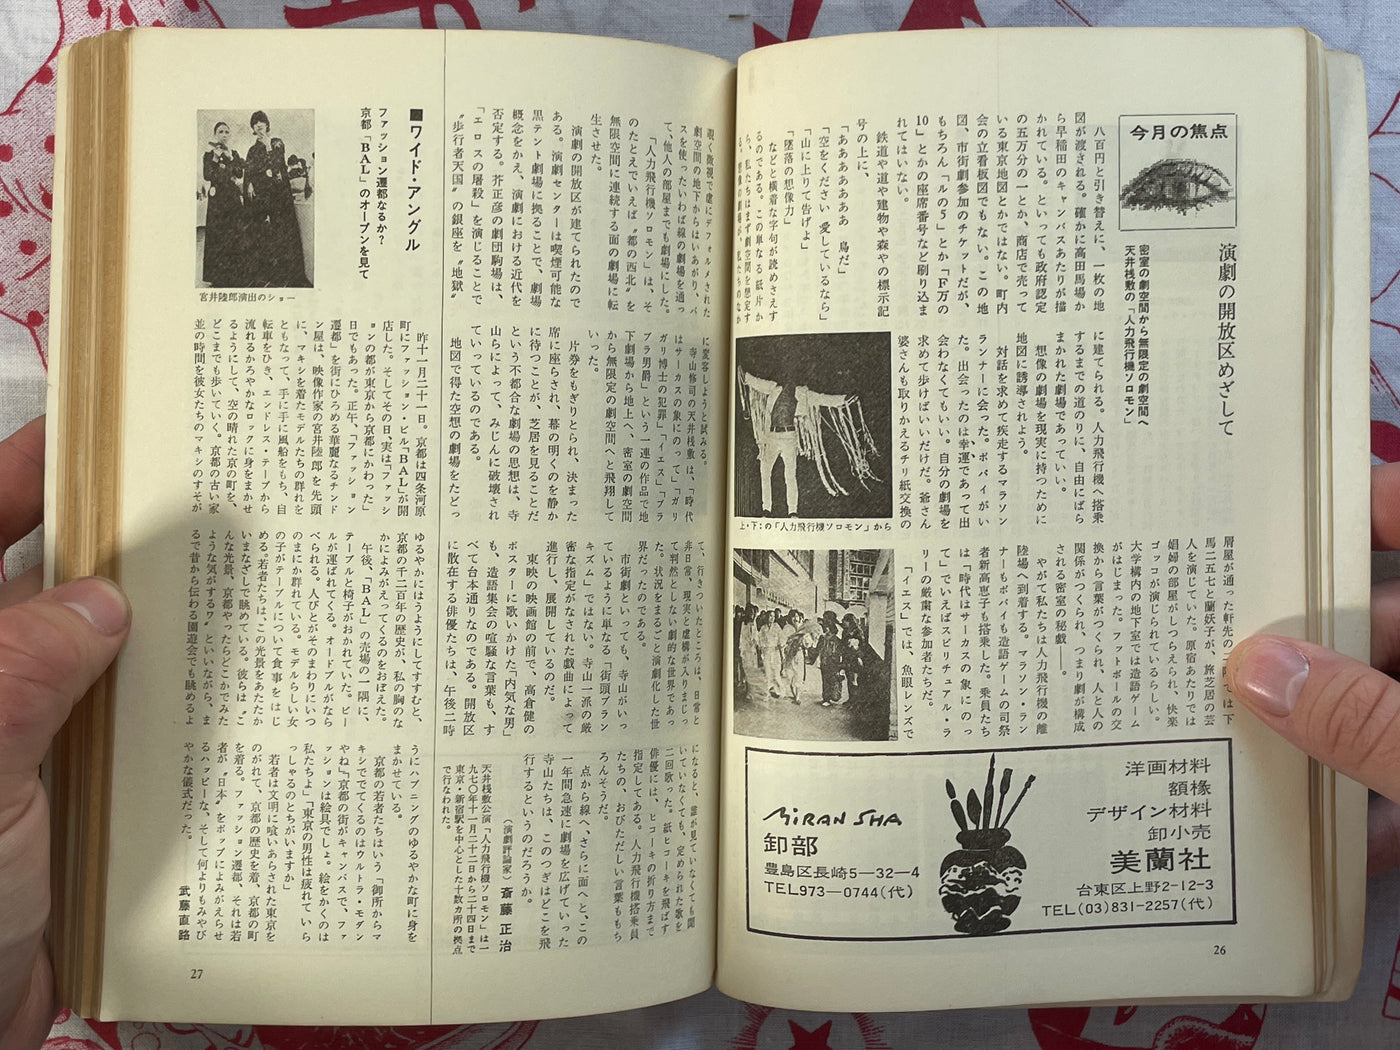 今月の焦点
演劇の開放区めざして
密室の劇空間から無限定の劇空間へ
天井桟敷の「人力飛行機ソロモン」
八百円と引き替えに、一枚の地
図が渡される。確かに高田馬場か
ら早稲田のキャンバスあたりが描
かれている。といっても政府認定
の五万分の一とか、商店で売って
いる東京地図とかではない。町内
会の立看板図でもない。この地
図、市街劇参加のチケットだが、
もちろん「ルの5」とか「F万の
10」とかの座席番号など刷り込ま
れてはいない。
鉄道や道や建物や森やの標示記
号の上に、
「ああああああ 鳥だ」
「空をください 愛しているなら」
「山に上りて告げよ」
「墜落の想像力」
などと横着な字句が読めさえす
るのである。この単なる紙片か
ら、私たちはまず劇空間を想定す
に建てられる。人力飛行機へ搭乗
するまでの道のりに、自由にばら
まかれた劇場であっていい。
想像の劇場を現実に持つために
地図に誘導されよう。
対話を求めて疾走するマラソン
ランナーに会った。ボパイがい
た。出会ったのは幸運であって出
会わなくてもいい。自分の劇場を
求めて歩けばいいだけだ。爺さん
婆さんも取りかえるチリ紙交換の
上・下:の「人力飛行機ソロモン」から
屑屋が通った軒先の二階では下
馬二五七と蘭妖子が、旅芝居の芸
人を演じていた。原宿あたりでは
娼婦の部屋がしつらえられ、快楽
ゴッコが演じられているらしい。
大学構内の地下室では造語ゲーム
がはじまった。フットボールの交
換から言葉がつくられ、人と人の
関係がつくられ、つまり劇が構成
される密室の秘戯――。
やがて私たちは人力飛行機の離
陸場へ到着する。マラソン・ラン
ナーもポパイも造語ゲームの司祭
者新高恵子も搭乗した。乗員たち
は「時代はサーカスの象にのっ
て」でいえばスピリチュアル・ラ
リーの厳粛な参加者たちだ。
「イエス」では、魚眼レンズで
洋画材料
額椽
デザイン材料
卸小売
美蘭社
台東区上野2-12-3
TEL(03)831-2257(代)
MiRAN SHA
卸部
豊島区長崎5―32―4
TEL973―0744(代)
26
覗く微視で虚にデフォルメされた
劇空間の地下からはいあがり、バ
スを使ったいわば線の劇場を通っ
て、他人の部屋までも劇場にした。
「人力飛行機ソロモン」は、そ
のたとえでいえば〝都の西北〟を
無限空間に連続する面の劇場に転
生させた。
演劇の開放区が建てられたので
ある。演劇センターは喫煙可能な
黒テント劇場に拠ることで、劇場
概念をかえ、演劇における近代を
否定する。芥正彦の劇団駒場は、
「エロスの屠殺」を演じることで
〝歩行者天国〟の銀座を〝地獄〟
に変容しようと試みる。
寺山修司の天井桟敷は、「時代
はサーカスの象にのって」「ガリ
ガリ博士の犯罪」「イエス」「ブラ
ブラ男爵」という一連の作品で地
下劇場から地上へ、密室の劇空間
から無限定の劇空間へと飛翔して
いった。
片券をもぎりとられ、決まった
席に座らされ、幕の明くのを静か
に待つことが、芝居を見ることだ
という不都合な劇場の思想は、寺
山らによって、みじんに破壊され
ていっているのである。
地図で得た空想の劇場をたどっ
て、行きついたところは、日常と
非日常、現実と虚構が入りまじっ
て判然としない劇的な世界であっ
た。状況をまるごと演劇化した世
界だったのである。
市街劇といっても、寺山がいっ
ているように単なる「街頭ブラン
キズム」ではない。寺山一派の厳
密な指定がなされた戯曲によって
進行し、展開しているのだ。
東映の映画館の前で、高倉健の
ポスターに歌いかけた「内気な男」
も、造語集会の喧騒な言葉も、す
べて台本通りなのである。開放区
に散在する俳優たちは、午後二時
になると、誰が見ていなくても聞
いていなくても、定められた歌を
二回歌った。紙ヒコーキを飛ばす
俳優には、ヒコーキの折り方まで
指定してある。人力飛行機搭乗員
たちの、おびただしい言葉ももち
ろんそうだ。
点から線へ、さらに面へと、この
一年間急速に劇場を広げていった
寺山たちは、このつぎはどこを飛
行するというのだろうか。
(演劇評論家) 斎藤正治
天井桟敷公演「人力飛行機ソロモン」は一
九七〇年十一月二十二日から二十四日まで
東京・新宿駅を中心とした十数カ所の拠点
で行なわれた。
■ワイド・アングル
ファッション遷都なるか?
京都「BAL」のオープンを見て
宮井陸郎演出のショー
昨十一月二十一日。京都は四条河原
町にファッション・ビル「BAL」が開
店した。そしてその日、実は「ファッシ
ョンの都が東京から京都にかわった」
日でもあった。正午、「ファッション
遷都」を街にひろめる華麗なるチンド
ン屋は、映像作家の宮井陸郎を先頭
に、マキシを着たモデルたちの群れを
ともなって、手に手に風船をもち、自
転車をひき、エンドレス・テープから
流れるかろやかなロックに身をまかせ
るようにして、空の晴れた京の町を、
どこまでも歩いていく。京都の古い家
並の時間を彼女たちのマキシのすそが
ゆるやかにはうようにしてすすむと、
京都の千二百年の歴史が、私の胸のな
かによみがえってくるのをおぼえた。
午後、「BAL」の売場の一隅に、
テーブルと椅子がおかれていた。ビー
ルが運ばれてくる。オードブルがなら
べられる。人びとがそのまわりにいつ
のまにか群れている。モデルらしい女
の子がテーブルについて食事をはじ
める。若者たちは、この光景をあたたか
いまなざしで眺めている。彼らは〝こ
んな光景、京都やったらどこかでみた
ような気がするワ〟といいながら、ま
るで昔から伝わる園遊会でも眺めるよ
うにハプニングのゆるやかな町に身を
まかせている。
京都の若者たちはいう「御所からマ
キシででてくるのはウルトラ・モダン
やね」「京都の街がキャンバスで、ファ
ッションは絵具でしょ。絵をかくのは
私たちよ」「東京の男性は疲れていら
っしゃるのとちがいますか」
若者は文明に喰いあらされた東京を
のがれて、京都の歴史を着、京都の町
を着る。ファッション遷都、それは若
者が〝日本〟をポップによみがえらせ
るハッピーな、そして何よりもみやび
やかな儀式だった。
武藤直路
27